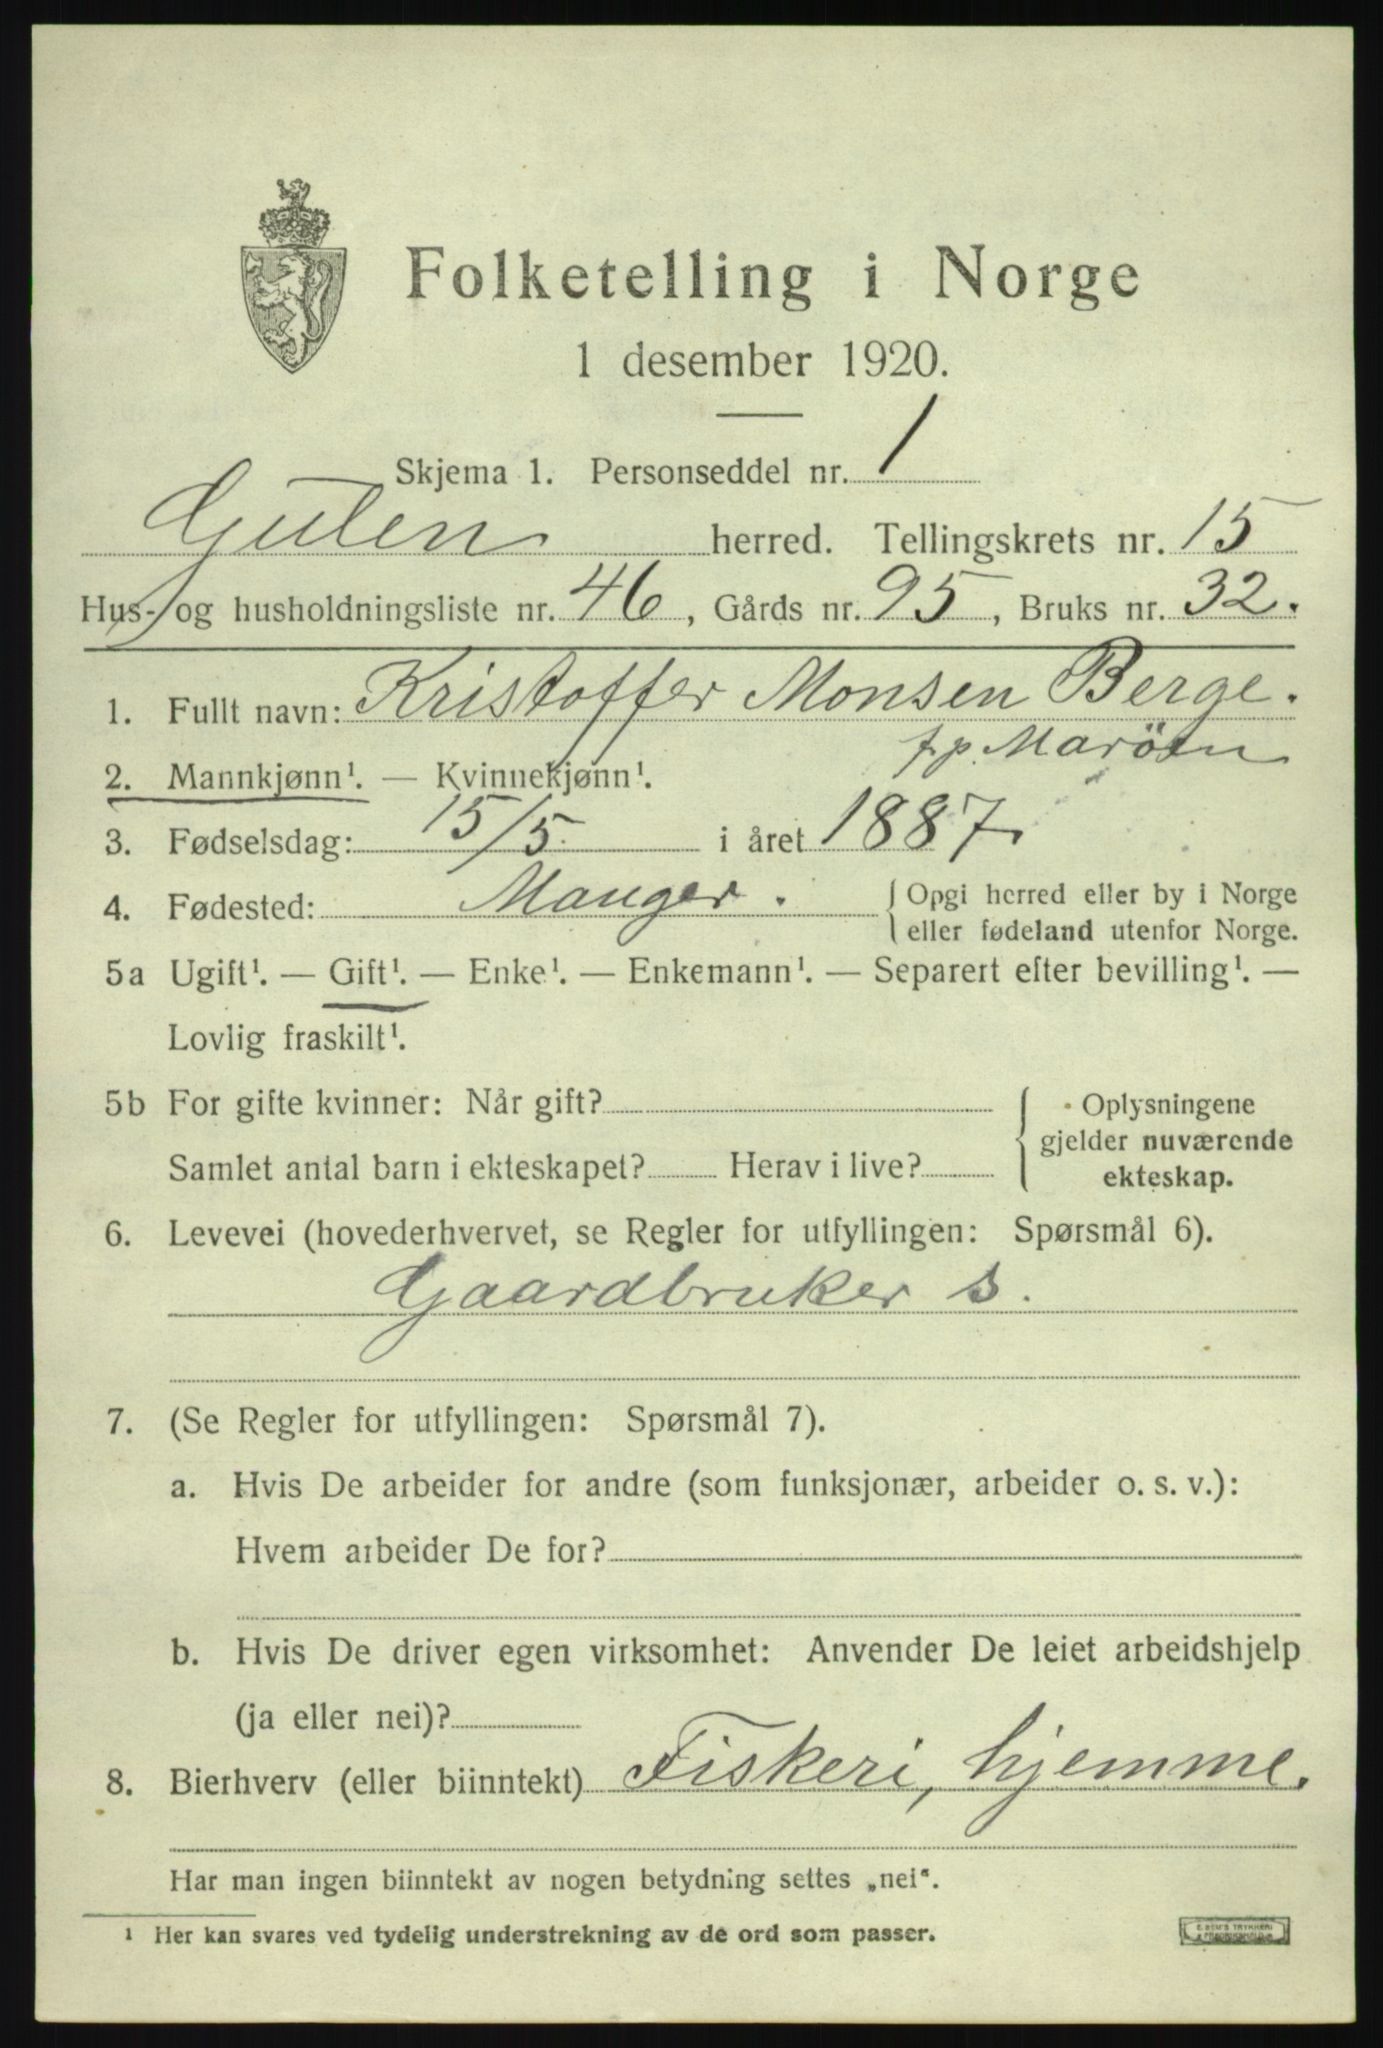 Folketelling i Norge
1 desember 1920.
Skjema 1. Personseddel nr. 1
Gulen herred. Tellingskrets nr. 15
Hus- og husholdningsliste nr. 46, Gårds nr. 95, Bruks nr. 32.
1. Fullt navn: Kristoffer Monsen Berge.
f.p. Maröen
2. Mannkjønn¹. — Kvinnekjønn¹.
3. Fødselsdag: 15/5. i året 1887.
4. Fødested: Manger. Opgi herred eller by i Norge
eller fødeland utenfor Norge.
5a Ugift¹. — Gift¹. — Enke¹. — Enkemann¹. — Separert efter bevilling¹. —
Lovlig fraskilt¹.
5b For gifte kvinner: Når gift? Oplysningene
gjelder nuværende
Samlet antal barn i ekteskapet? Herav i live? ekteskap.
6. Levevei (hovederhvervet, se Regler for utfyllingen: Spørsmål 6).
Gaardbruker s.
7. (Se Regler for utfyllingen: Spørsmål 7).
a. Hvis De arbeider for andre (som funksjonær, arbeider o. s. v.):
Hvem arbeider De for?
b. Hvis De driver egen virksomhet: Anvender De leiet arbeidshjelp
(ja eller nei)?
8. Bierhverv (eller biinntekt) Fiskeri, hjemme.
Har man ingen biinntekt av nogen betydning settes „nei“.
¹ Her kan svares ved tydelig understrekning av de ord som passer.